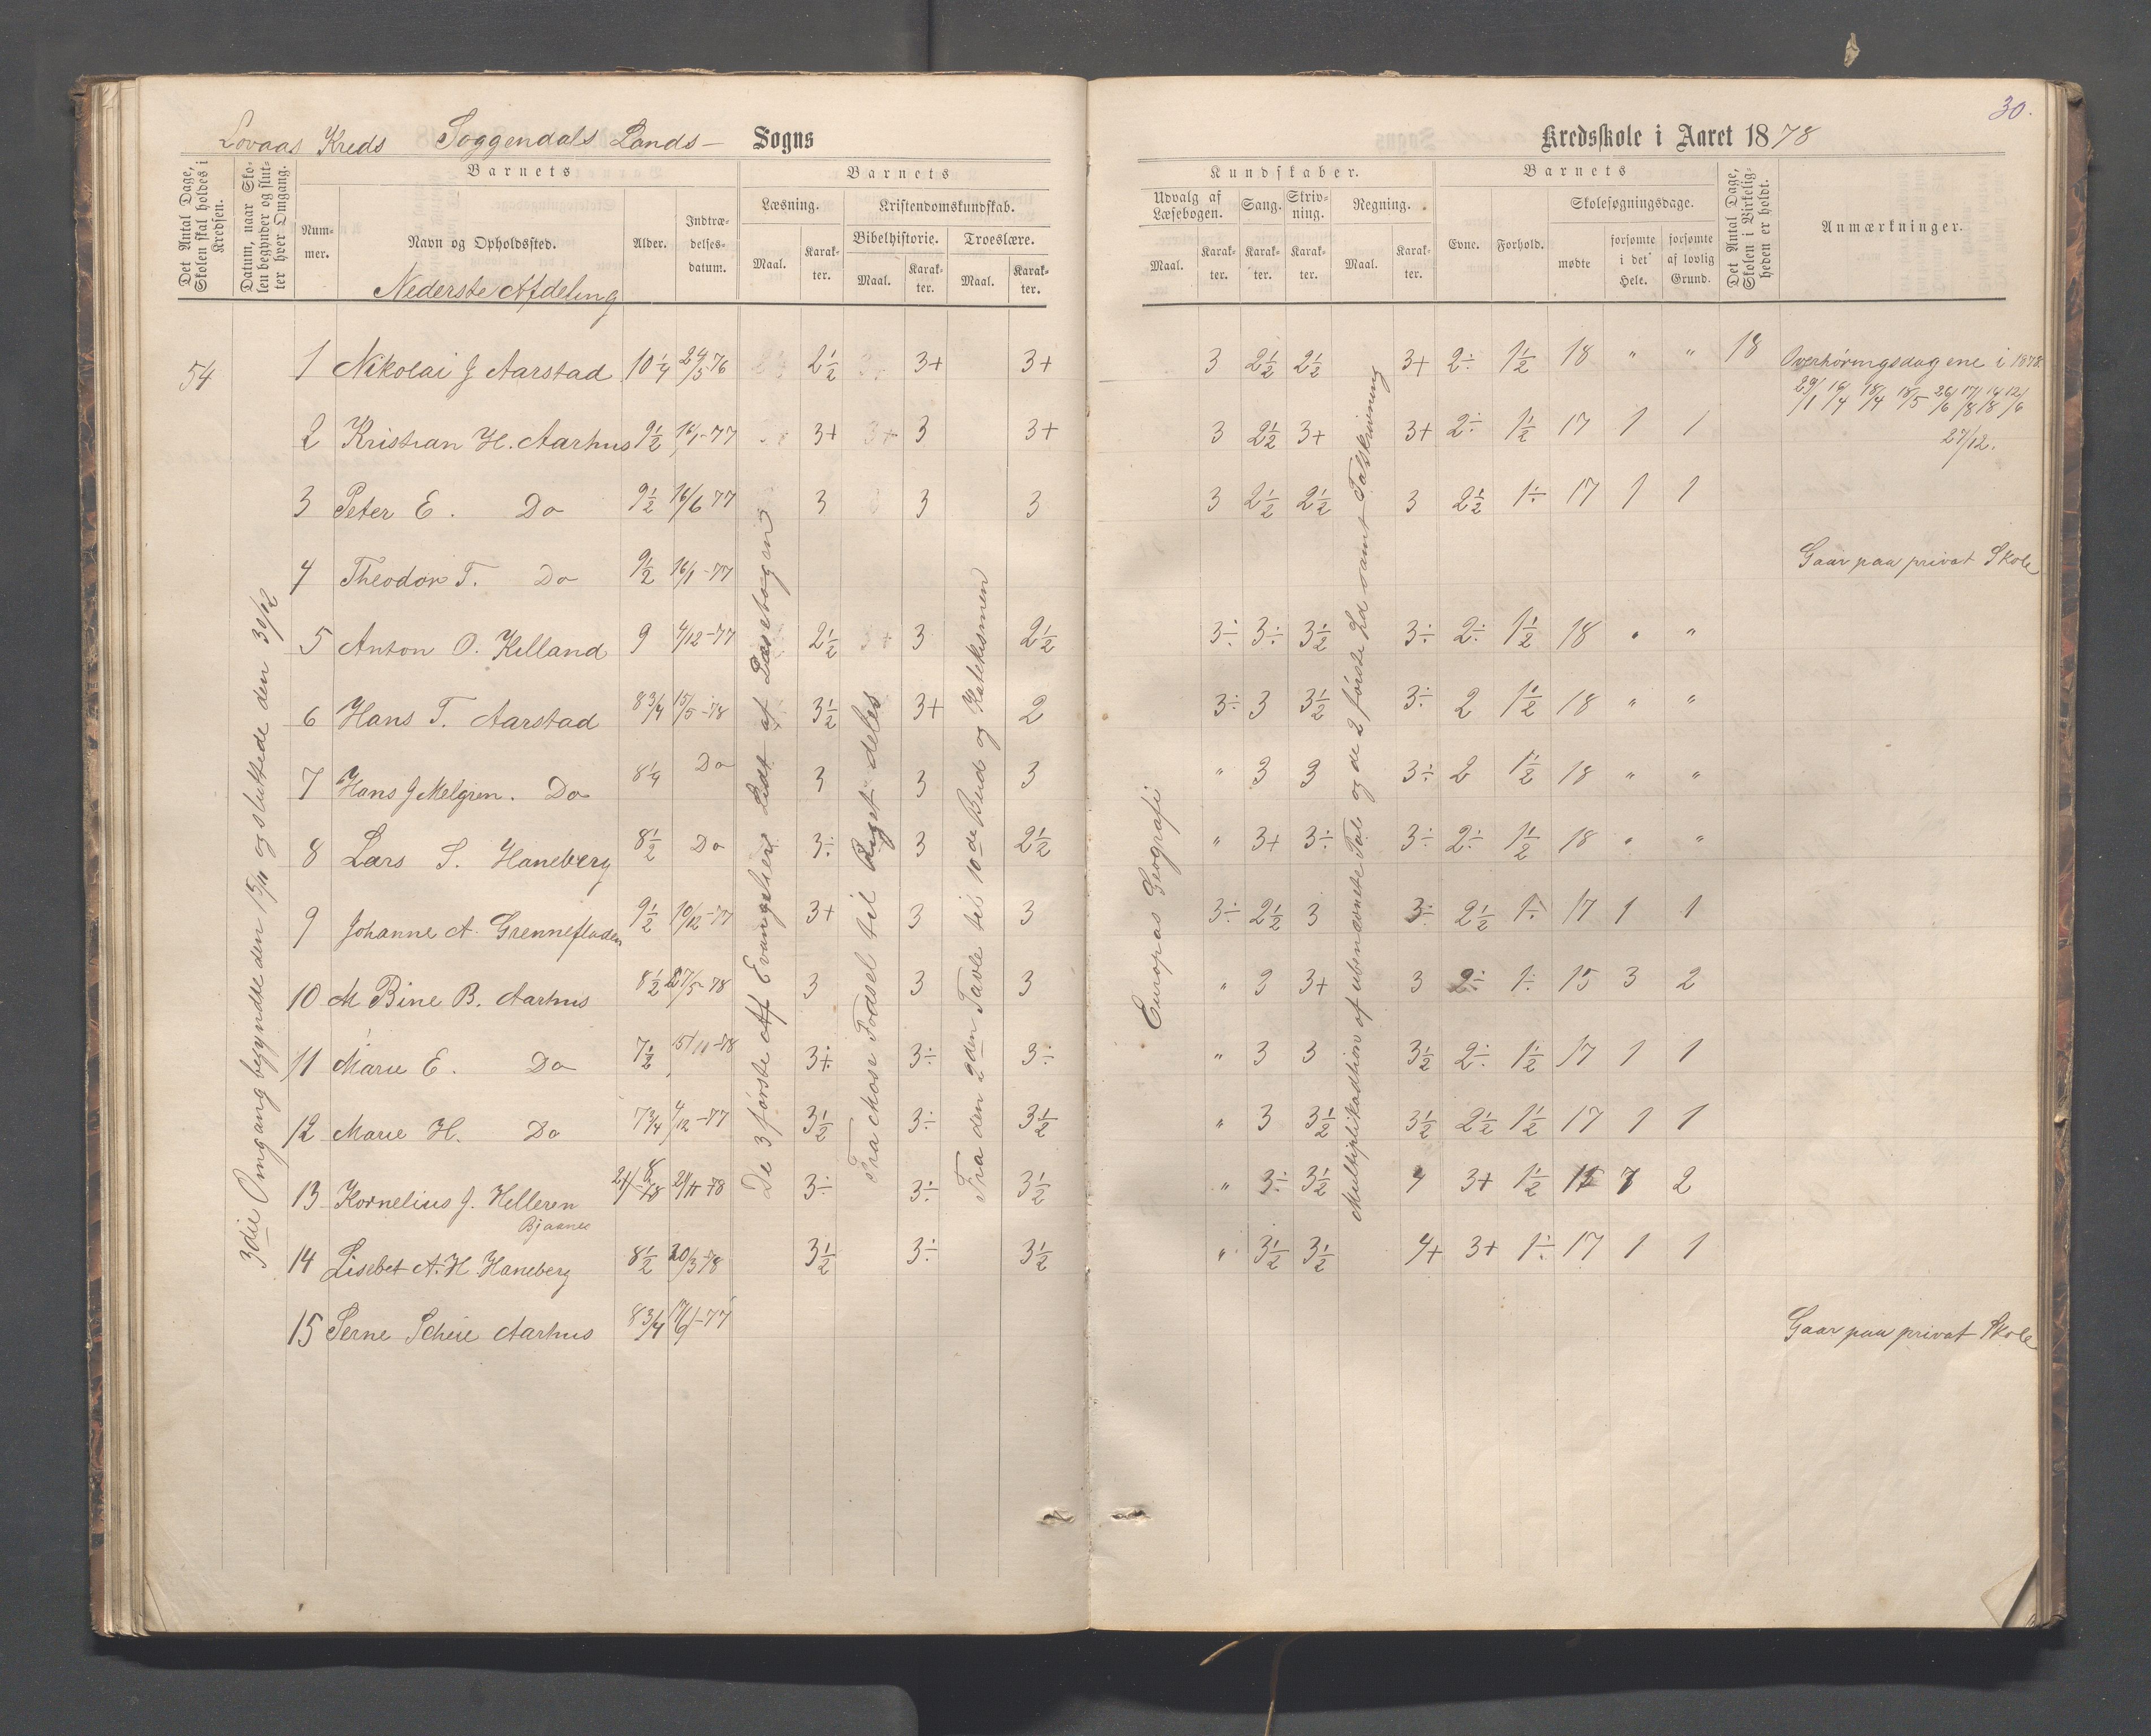 30.
Lovaas Kreds Soggendals Lands- Sogns Kredsskole i Aaret 1878
Det Antal Dage, Skolen skal holdes i Kredsen.
Datum, naar Skolen begynder og slutter hver Omgang.
Barnets
Nummer.
Navn og Opholdssted.
Alder.
Indtrædelsesdatum.
Barnets
Læsning.
Maal.
Karakter.
Kristendomskundskab.
Bibelhistorie.
Maal.
Karakter.
Troeslære.
Maal.
Karakter.
Kundskaber.
Udvalg af Læsebogen.
Maal.
Karakter.
Sang.
Karakter.
Skrivning.
Karakter.
Regning.
Maal.
Karakter.
Barnets
Evne.
Forhold.
Skolesøgningsdage.
mødte
forsømte i det Hele.
forsømte af lovlig Grund.
Det Antal Dage, Skolen i Virkeligheden er holdt.
Anmærkninger.
Nederste Afdeling
54
3die Omgang begyndte den 15/11 og sluttede den 30/12
De 3 første Af Evangeliene Lidt af Læsebogen
Fra Mose Fødsel til Riget deles
Fra den 2den Tavle til 10de Bud og Katekismen
Europas Geografi
Multiplikadtion af ubenævnte Tal og de 2 første Ld samt Talskrivning
1 Nikolai J Aarstad 10 1/4 24/5 76 2 1/2 3+ 3+ 3 2 1/2 2 1/2 3+ 2÷ 1 1/2 18 " " 18 Overhøringsdagene i 1878.
27/12.
2 Kristian H. Aarhus 9 1/2 16/1-77 3+ 3 3+ 3 2 1/2 3+ 3+ 2÷ 1 1/2 17 1 1
3 Peter E. Do 9 1/2 16/6 77 3 3 3 3 2 1/2 2 1/2 3 2 1/2 1÷ 17 1 1
4 Theodor T. Do 9 1/2 16/1-77 Gaar paa privat Skole
5 Anton O. Kelland 9 4/12-77 2 1/2 3 2 1/2 3÷ 3÷ 3 1/2 3÷ 2÷ 1 1/2 18 " "
6 Hans T. Aarstad 8 3/4 15/5-78 3 1/2 3+ 2 3÷ 3 3 1/2 3÷ 2 1 1/2 18 " "
7 Hans J Melgren. Do 8 1/4 Do 3 3 3 " 3 3 3÷ 2 1 1/2 18 " "
8 Lars S. Haneberg 8 1/2 Do 3÷ 3 2 1/2 " 3+ 3÷ 3÷ 2÷ 1 1/2 18 " "
9 Johanne A. Grennefladen 9 1/2 10/12-77 3+ 3 3 3÷ 2 1/2 3 3÷ 2 1/2 1÷ 17 1 1
10 M Bine B. Aarhus 8 1/2 27/5-78 3 3 3 " 3 3+ 3 2÷ 1÷ 15 3 2
11 Marie E. Do 7 1/2 15/11-78 3÷ 3÷ 3÷ " 3 3 3 1/2 2÷ 1 1/2 17 1 1
12 Marie H. Do 7 3/4 4/12-77 3 1/2 3÷ 3 1/2 " 3 3 1/2 3 1/2 2 1/2 1 1/2 17 1 1
13 Kornelius J. Helleren 3÷ 3÷ 3 1/2 " 3÷ 3 1/2 4 3+ 1 1/2 2
Bjaanes
14 Lisebet A. H. Haneberg 8 1/2 20/3-78 3 1/2 3÷ 3 1/2 " 3 1/2 3 1/2 4+ 3+ 1÷ 17 1 1
15 Serne Scheie Aarhus 8 3/4 Gaar paa privat Skole